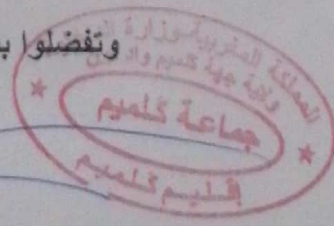 وتفضلوا
المملكة المغربية وزارة
ولاية جهة كلميم واد
جماعة كلميم
إقليم كلميم